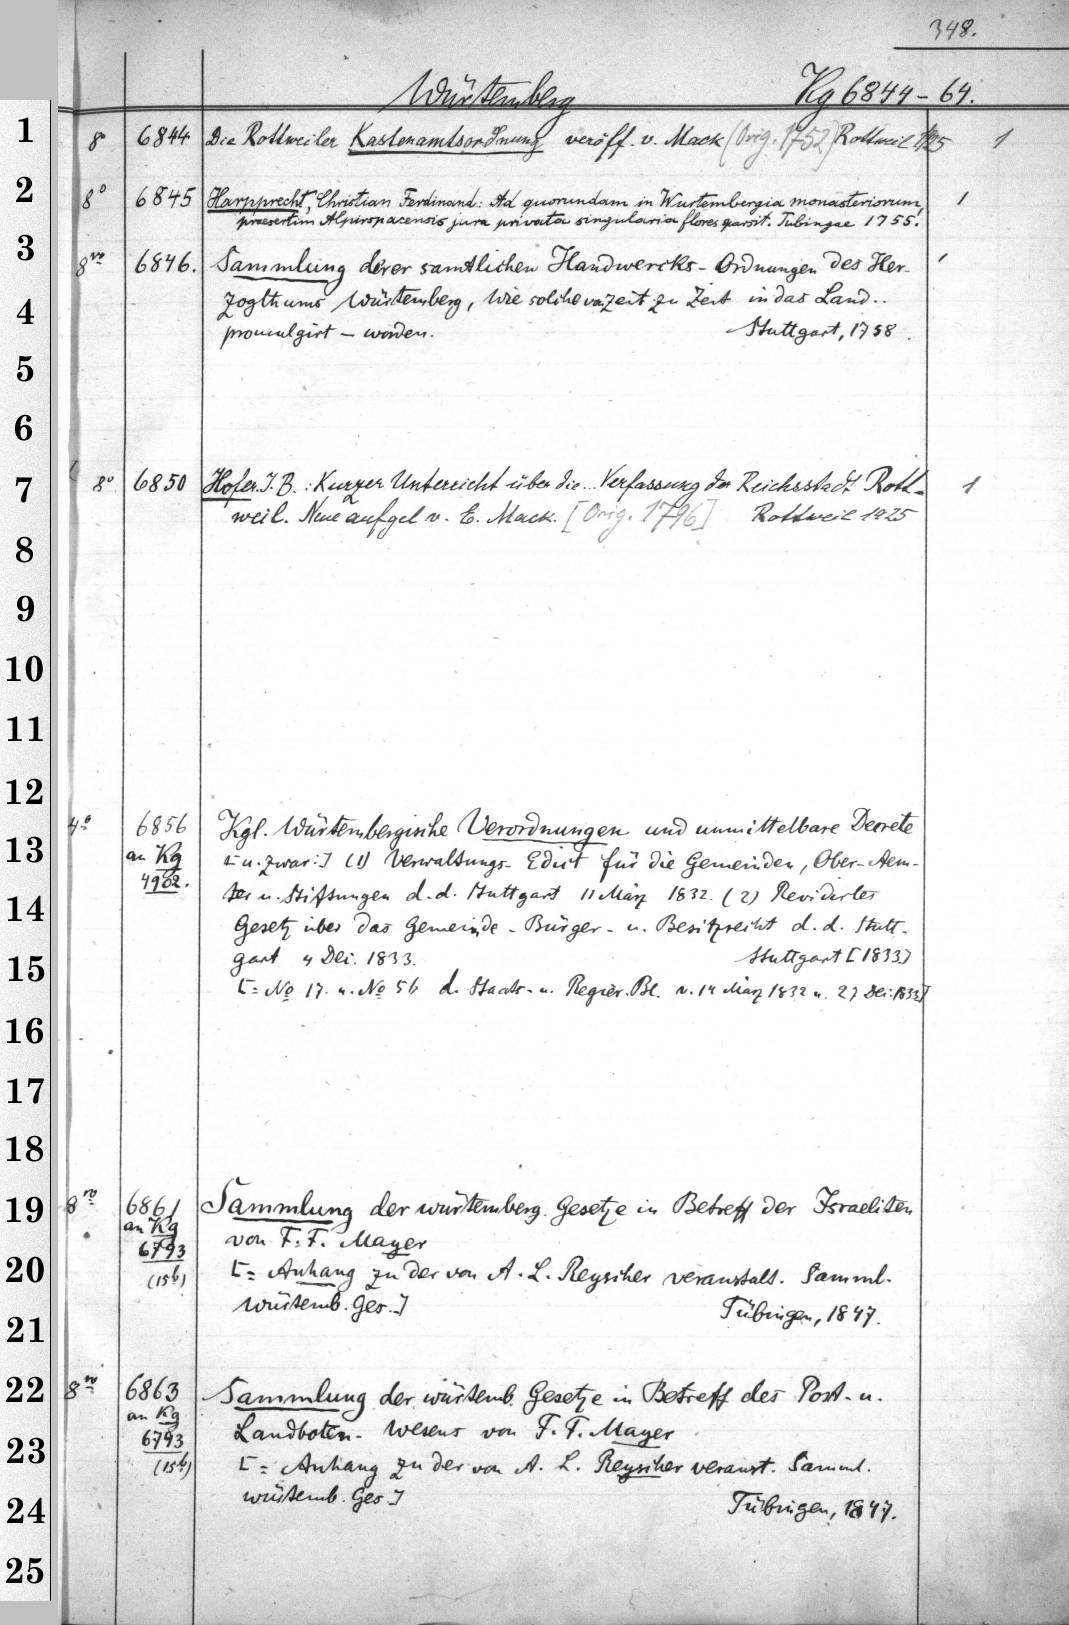 348.
Würtemberg Kg 6844-64.
1
8° 6844 Die Rottweiler Kastenamtsordnung veröff. v. Mack (Orig. 1752) Rottweil 1925 1
2
8° 6845 Harpprecht, Christian Ferdinand: Ad quorundam in Wurtembergia monasteriorum, 1
praesertim Alpirspacensis jura privata singularia flores sparsit. Tubingae 1755.
3
8vo 6846. Sammlung derer samtlichen Handwercks-Ordnungen des Her-
4
zogthums Würtemberg, wie solche von Zeit zu Zeit in das Land..
promulgirt - worden. Stuttgart, 1758.
5
6
7
8° 6850 Hofer, J. B.: Kurzer Unterricht über die... Verfassung der Reichsstadt Rott- 1
weil. Neu aufgel v. E. Mack. [Orig. 1796] Rottweil 1925
8
9
10
11
12
4° 6856 Kgl. Würtembergische Verordnungen und unmittelbare Decrete
13
an Kg [u. zwar:] (1) Verwaltungs-Edict für die Gemeinden, Ober-Aem-
4962. ter u. Stiftungen d. d. Stuttgart 11 März 1832. (2) Revidirtes
14
Gesetz über das Gemeinde-Bürger- u. Besitzrecht d. d. Stutt-
15
gart 4 Dei. 1833. Stuttgart [1833]
[= No 17. u. No 56 d. Staats- u. Regier. Bl. v. 14 März 1832 u. 27 Dei. 1833]
16
17
18
19
8vo 6861 Sammlung der würtemberg. Gesetze in Betreff der Israeliten
an Kg von F. F. Mayer
20
6793 [= Anhang zu der von A. L. Reyscher veranstalt. Samml.
(15b) würtemb. Ges.] Tübingen, 1847.
21
22
8vo 6863 Sammlung der würtemb. Gesetze in Betreff des Post- u.
an Kg Landboten-Wesens von F. F. Mayer
23
6793 [= Anhang zu der von A. L. Reyscher veranst. Samml.
(15b) würtemb. Ges.] Tübingen, 1847.
24
25